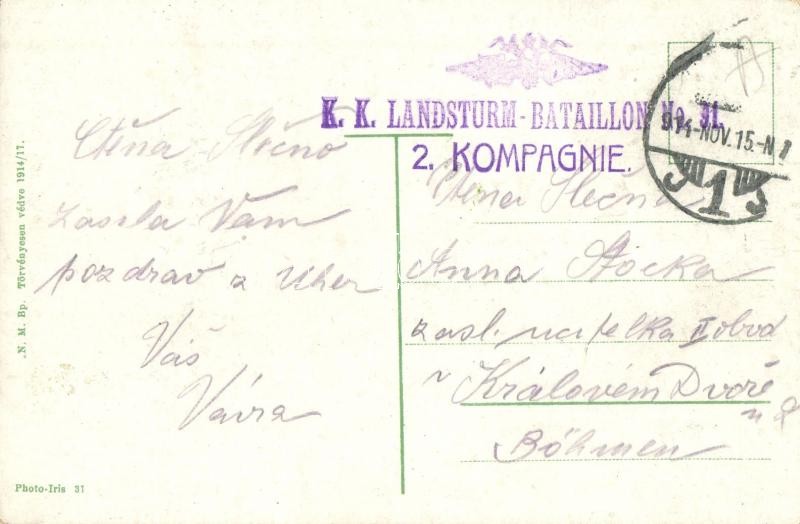 K. K. LANDSTURM-BATAILLON No 31.
2. KOMPAGNIE.
914-NOV.15.-N
1
Ctěna Slečno
zasila Vam
pozdrav z Uher
Váš
Vávra
Ctena Slečna
Anna Stocka
zasl. na
v Královém Dvoře
Böhmen
.N. M. Bp. Törvényesen védve 1914/17.
Photo-Iris 31